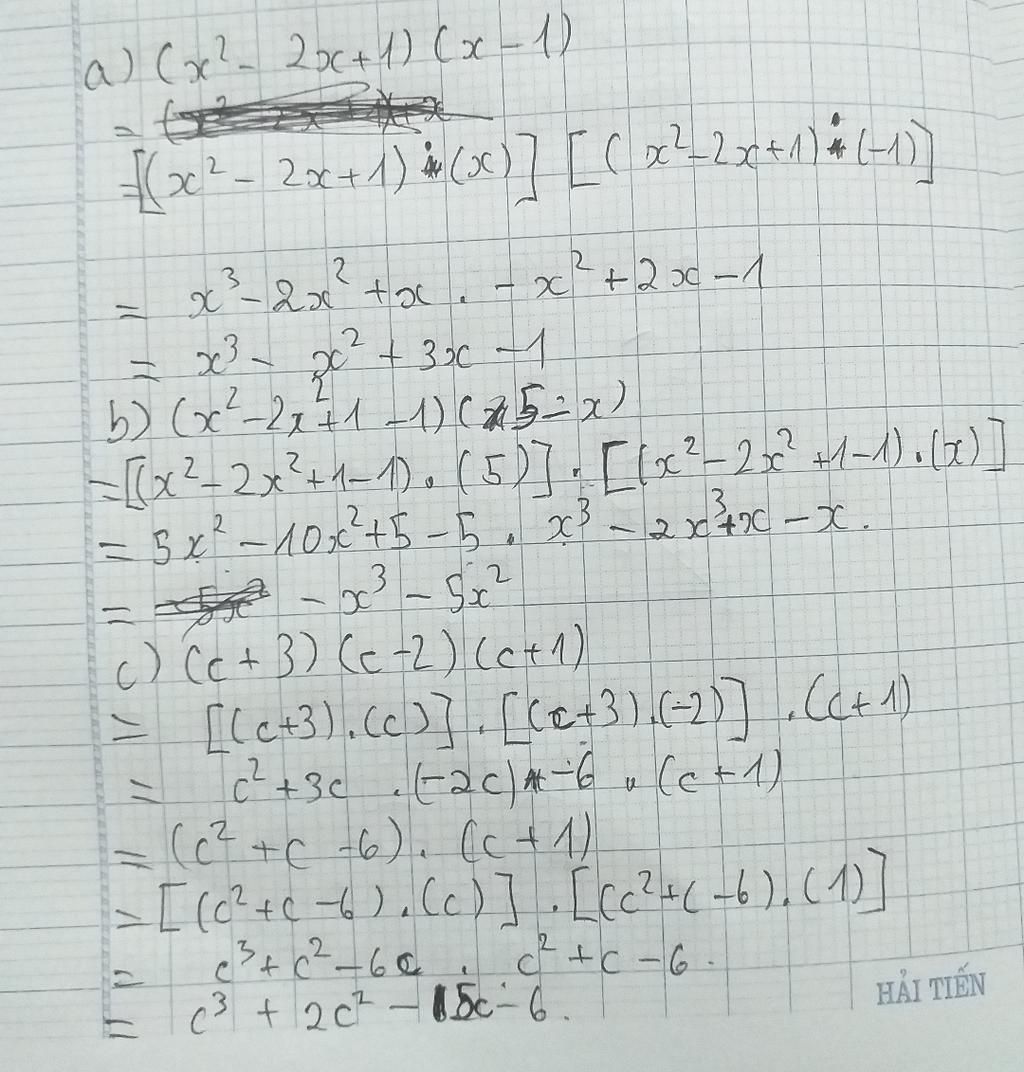 a) (x² - 2x + 1) (x - 1)
=
= [(x² - 2x + 1) . (x)] [(x² - 2x + 1) . (-1)]
= x³ - 2x² + x . - x² + 2x - 1
= x³ - x² + 3x - 1
b) (x² - 2x² + 1 - 1) (5 - x)
= [(x² - 2x² + 1 - 1) . (5)] . [(x² - 2x² + 1 - 1) . (x)]
= 5x² - 10x² + 5 - 5 . x³ - 2x³ + x - x.
= - x³ - 5x²
c) (c + 3) (c - 2) (c + 1)
= [(c + 3) . (c)] . [(c + 3) . (-2)] . (c + 1)
= c² + 3c . (-2c) - 6 . (c + 1)
= (c² + c - 6) . (c + 1)
= [(c² + c - 6) . (c)] . [(c² + c - 6) . (1)]
= c³ + c² - 6c . c² + c - 6.
= c³ + 2c² - 5c - 6.
HẢI TIẾN